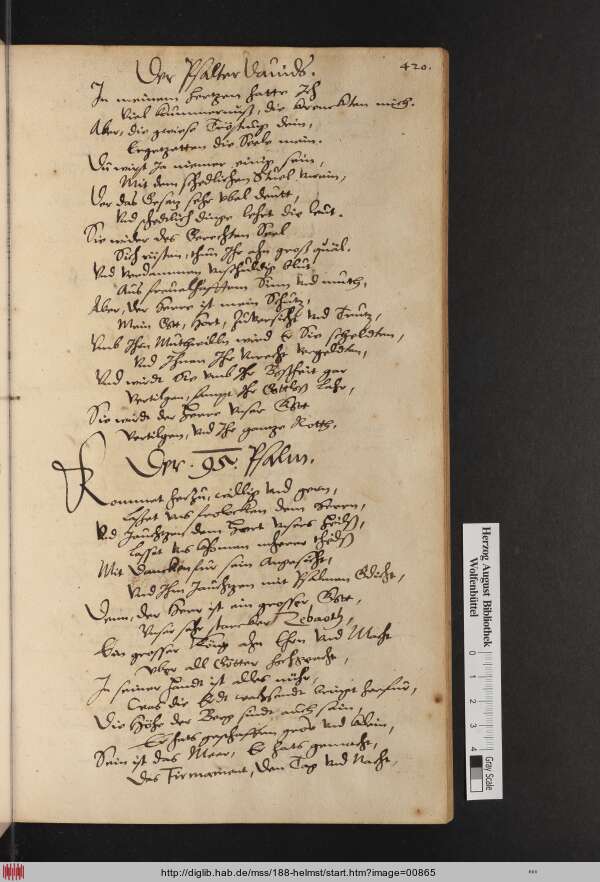 420.
Der Psalter Dauids.
In meinem hertzen hatte Ich
Viel kummernuß, die krenckten mich.
Aber, die gwisse Tröstung dein,
Ergetzetten die Seele mein.
Du wirst Ja niemer einig sein,
Mit dem schedlichen Stuel
Der das Gesatz sehr vbel deutt,
Vnd schedlich dinge lehrt die leut.
Sie wider des Gerechten Seel
Sich rüsten, thun Ihr ahn gross quäl.
Vnd verdammen vnschuldig blut
Aus freuelhafftem Sinn vnd muth,
Aber, der Herre ist mein Schutz,
Mein Gott, Hort, Zuversicht vnd Trutz,
Vmb Ihrn Muthwilln wird Er Sie scheldten,
Vnd Ihnen Ihr Vnrecht vergeldten,
Vnd würdt Sie vmb Ihr Bossheit gar
Vertilgen, sampt Ihr Gottloss lahr,
Sie würdt der Herre vnser Gott
Vertilgen, vnd Ihr gantze Rott.
Der .95. Psalm.
Kommet herzu, willig vnd gern,
Lasset vns frolocken dem Herrn,
Vnd Jauchzen dem Hort vnsers Heils,
Lasset vns khomen
Mit Dancken für sein Angesicht,
Vnd Ihm Jauchzen mit Psalmen Gdicht,
Denn, der Herr ist ein grosser Gott,
Vnser sehr starcker Zebaoth,
Ein grosser König ahn Ehrn vnd Macht
Vber all Götter hochgeacht,
In seiner Handt ist alles
Was die Erdt bringt herfür,
Die Höhe der Berg sindt auch sein,
Er hats geschaffen gross vnd klein,
Sein ist das Meer, Er hats gemacht,
Das Firmament, den Tag vnd Nacht,
Herzog August Bibliothek
Wolfenbüttel
0 1 2 3 4
Gray Scale
http://diglib.hab.de/mss/188-helmst/start.htm?image=00865